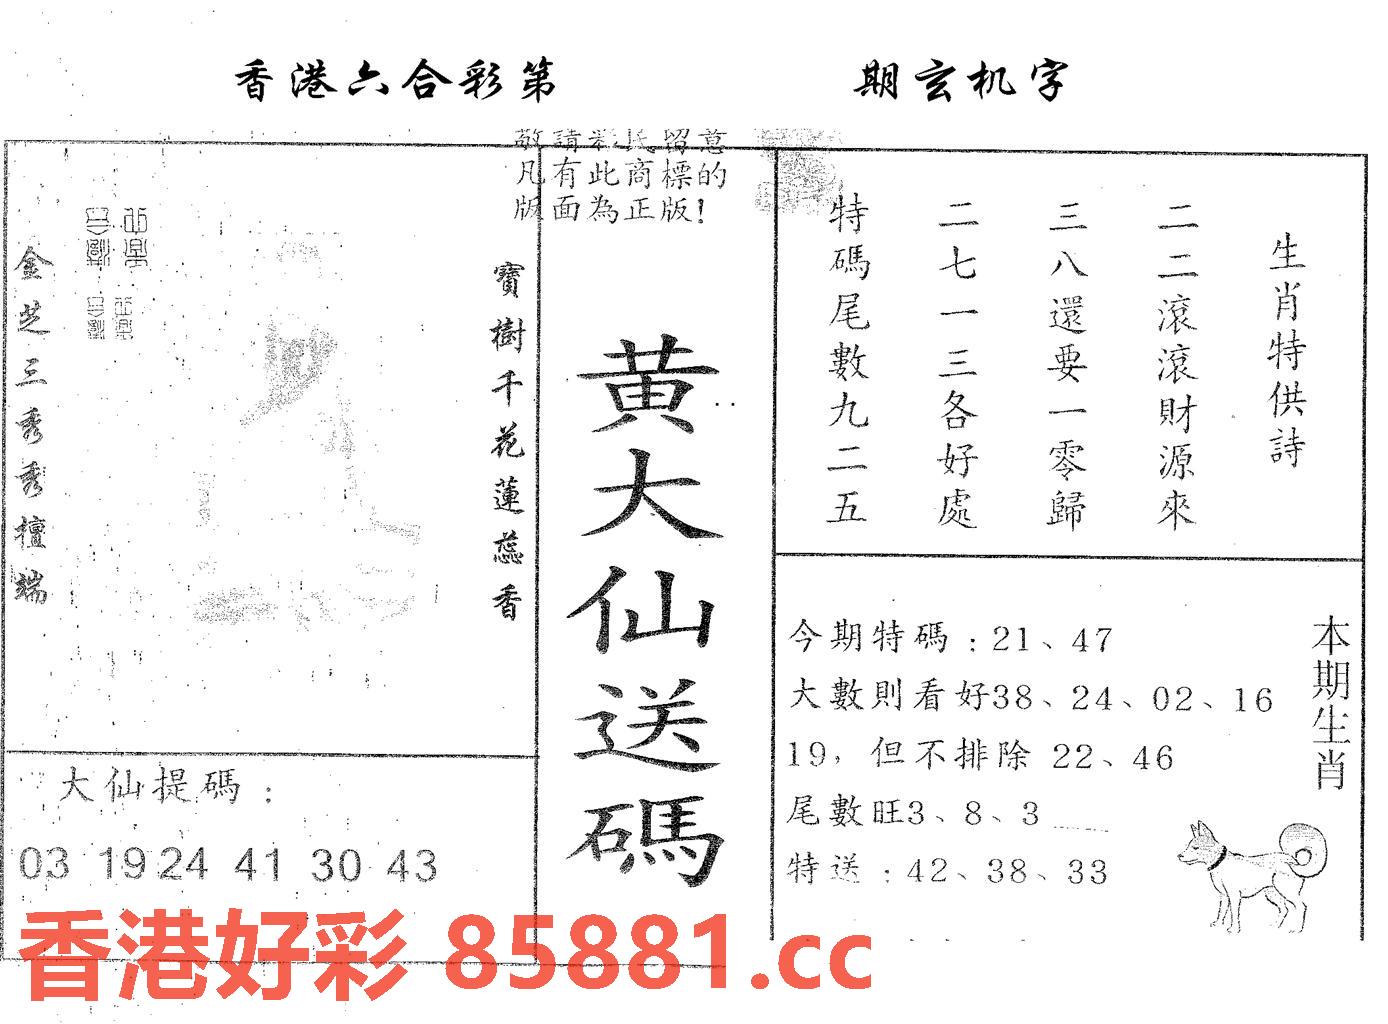 香港六合彩第 期玄机字
敬請彩民留意
凡有此商標的
版面為正版!
寶樹千花蓮蕊香
金芝三秀秀檀端
黄大仙送碼
生肖特供詩
二二滾滾財源來
三八還要一零歸
二七一三各好處
特碼尾數九二五
大仙提碼：
03 19 24 41 30 43
今期特碼：21、47
大數則看好38、24、02、16
19，但不排除 22、46
尾數旺3、8、3
特送：42、38、33
本期生肖
香港好彩 85881.cc